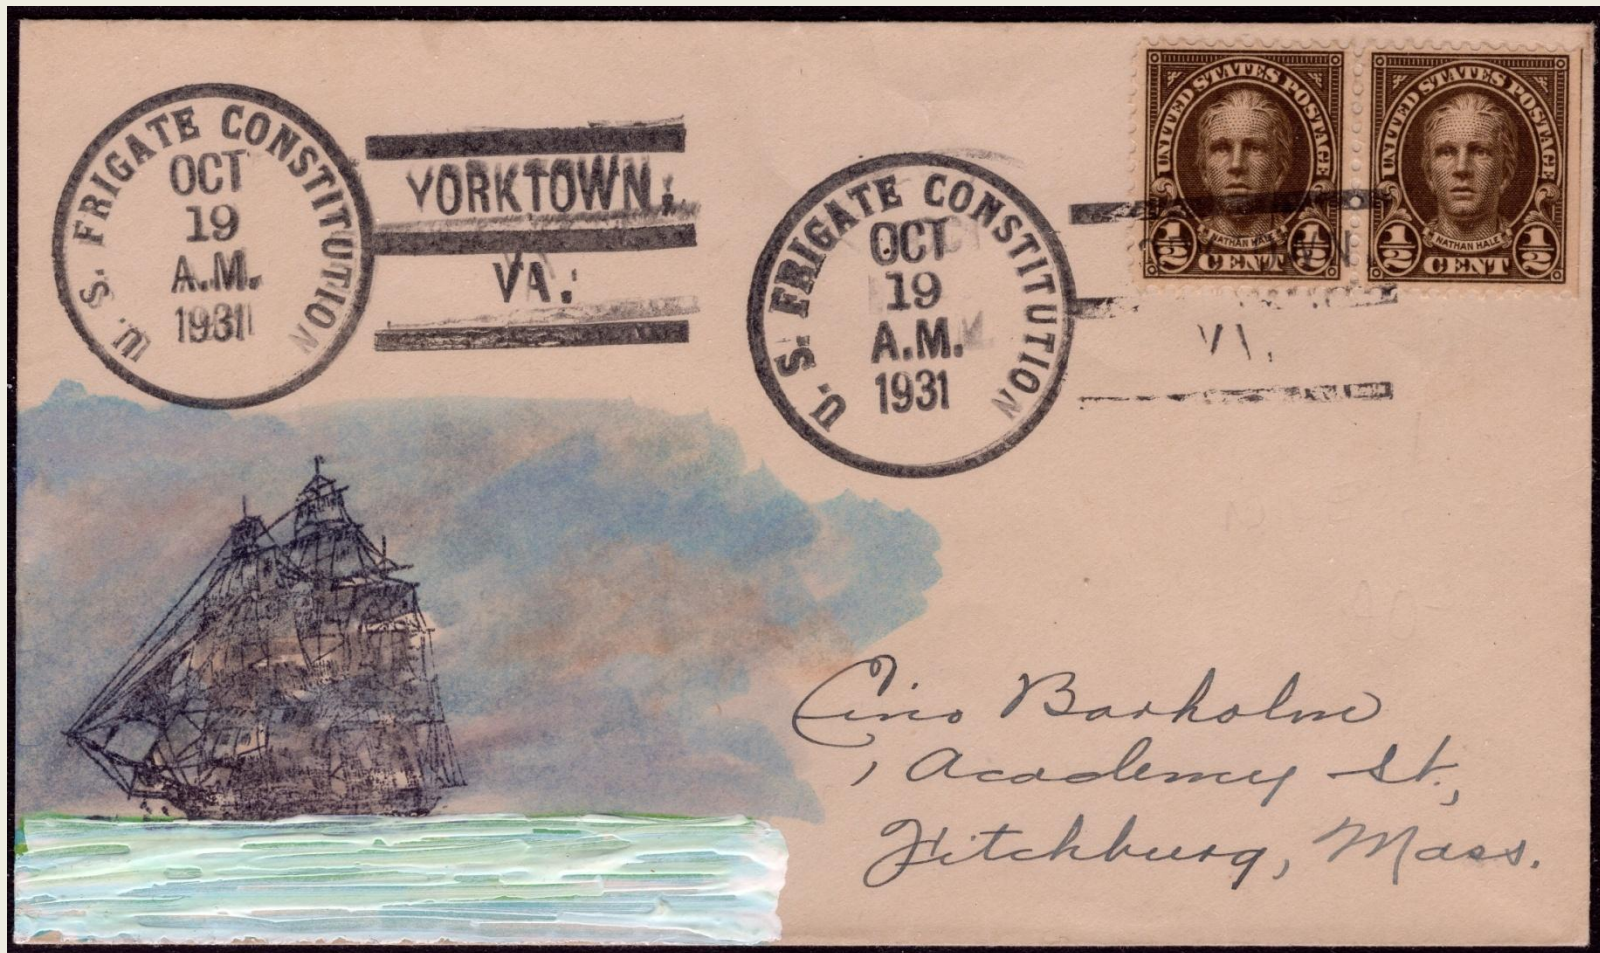 U. S. FRIGATE CONSTITUTION
OCT
19
A.M.
1931
YORKTOWN,
VA.
U. S. FRIGATE CONSTITUTION
OCT
19
A.M.
1931
VA.
UNITED STATES POSTAGE
NATHAN HALE
1/2 CENT 1/2
UNITED STATES POSTAGE
NATHAN HALE
1/2 CENT 1/2
Eino Barholm
Academy St.,
Fitchburg, Mass.